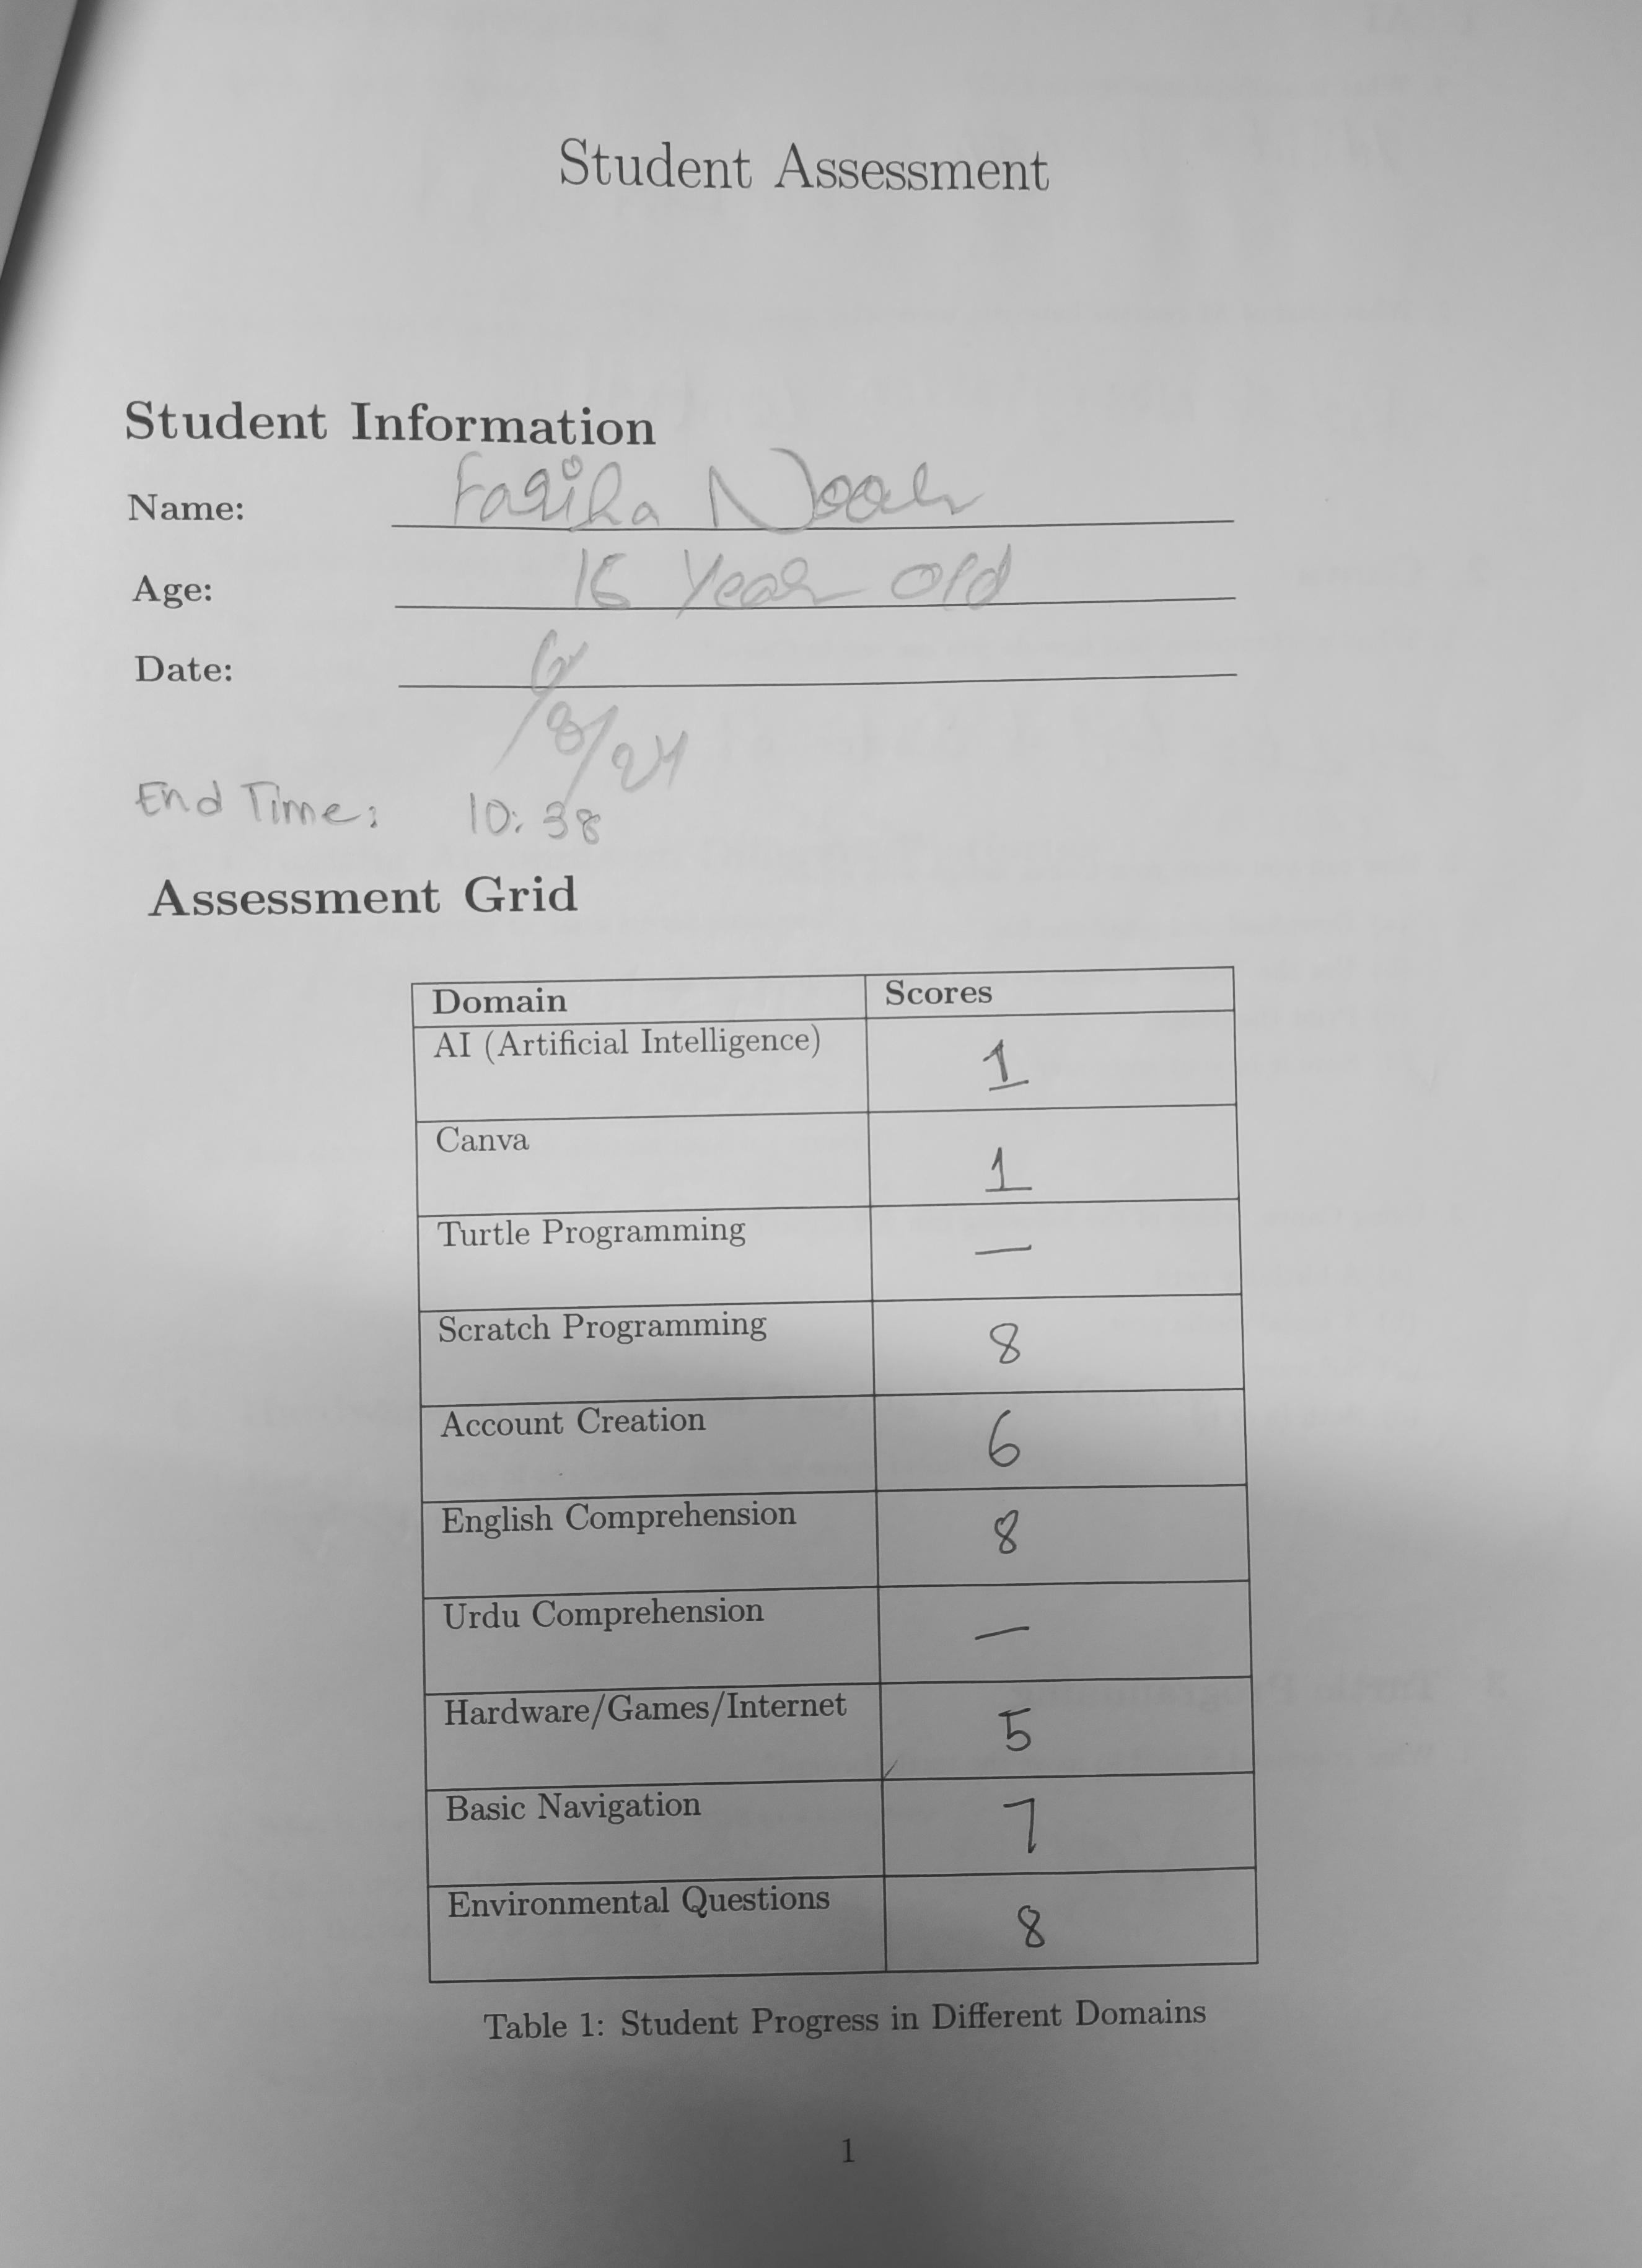 Student Assessment
Student Information
Name: Fariha Noor
Age: 16 Year old
Date: 6
/8/24
End Time: 10:38
Assessment Grid
Domain Scores
AI (Artificial Intelligence) 1
Canva 1
Turtle Programming —
Scratch Programming 8
Account Creation 6
English Comprehension 8
Urdu Comprehension —
Hardware/Games/Internet 5
Basic Navigation 7
Environmental Questions 8
Table 1: Student Progress in Different Domains
1